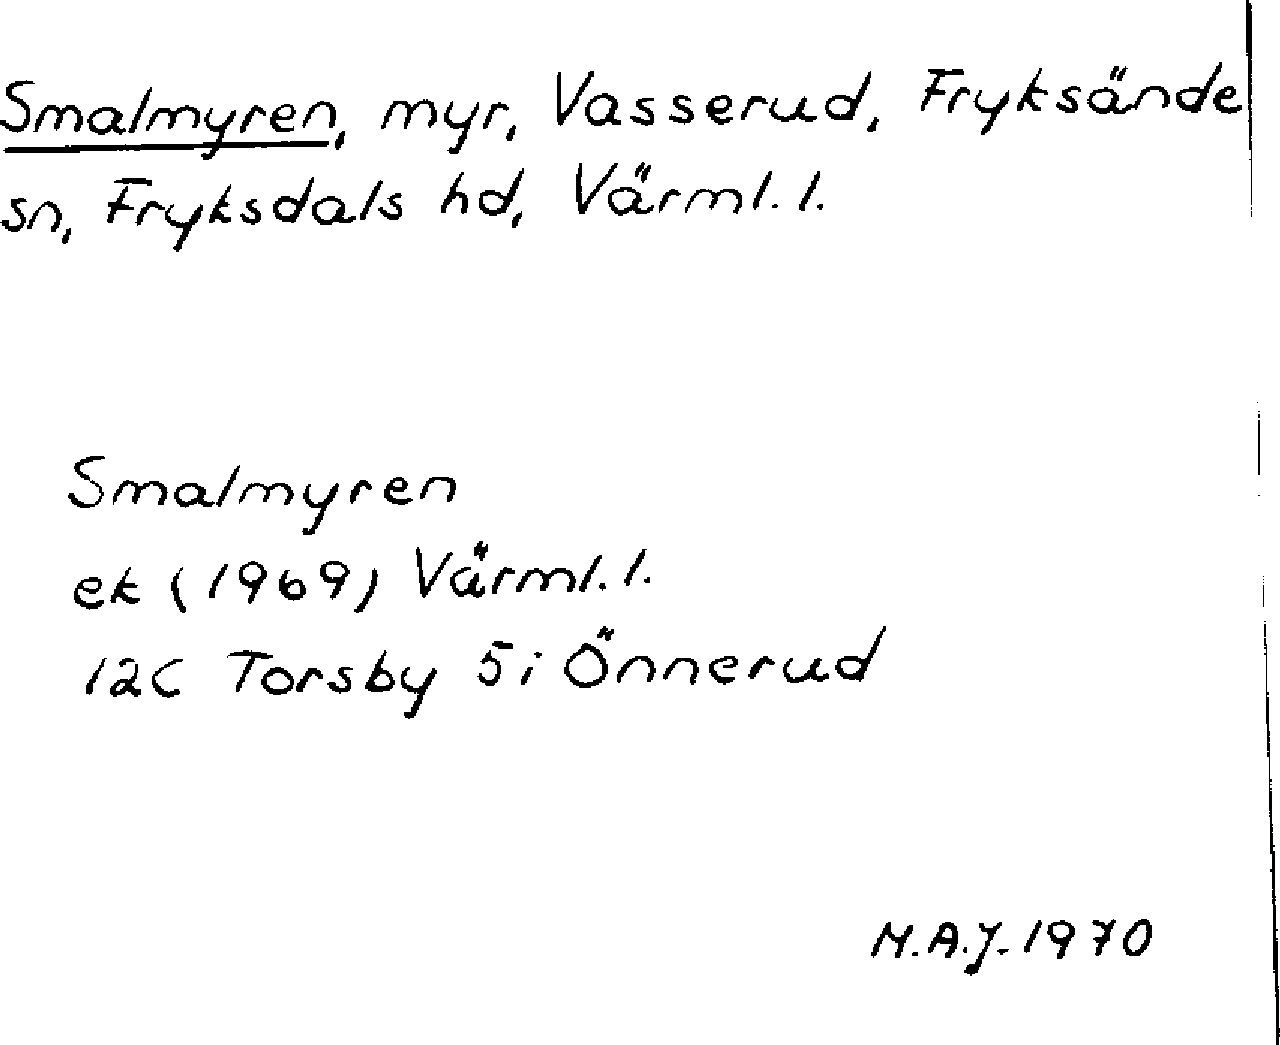 Smalmyren, myr, Vasserud, Fryksände
sn, Fryksdals hd, Värml. l.
Smalmyren
ek (1969) Värml. l.
12C Torsby 5i Önnerud
M.A.J. 1970